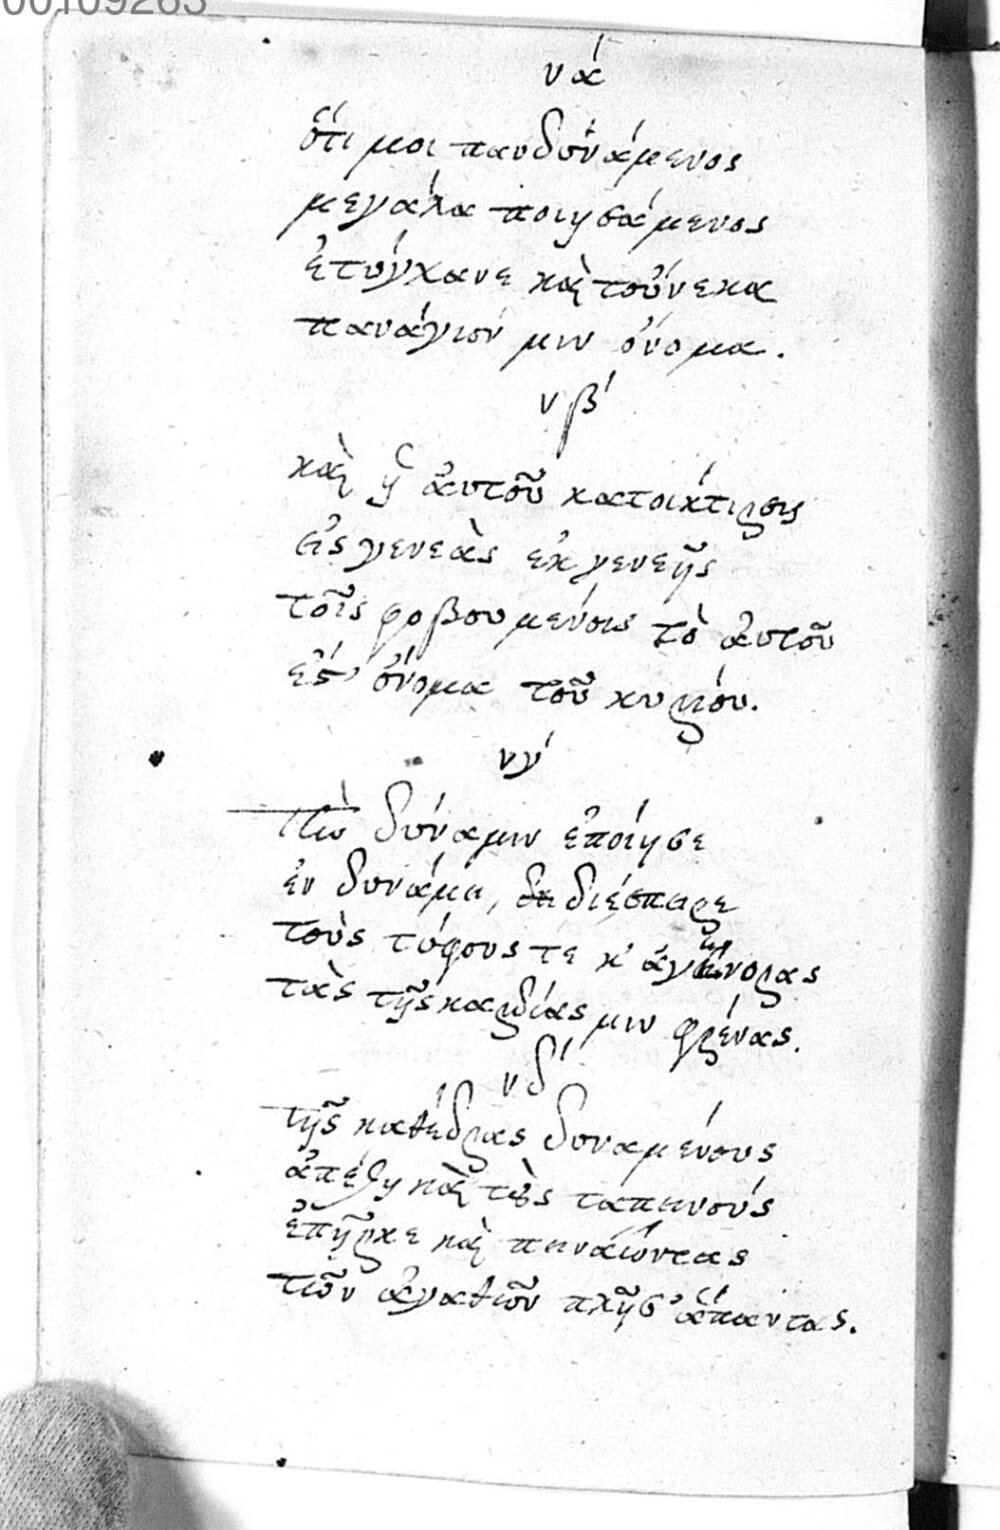 00109263
νά
ὅτι μοι πανδυνάμενος
μεγάλα ποιησάμενος
ἐτύγχανε καὶ τοὔνεκα
πανάγιόν μιν ὄνομα.
νβ'
καὶ ἡ ἀυτοῦ κατοικτιρσις
εἰς γενεὰς ἐκ γενεῆς
τοῖς φοβουμένοις τὸ ἀυτοῦ
ἐς' ὄνομα τοῦ κυρίου.
νγ'
Τὼ δύναμιν ἐποίησε
ἐν δυνάμει, διέσπειρε
τοὺς τύφους τε κ' ἀγήνορας
τὰς τῆς καρδίας μιν φρένας.
νδ'
τῆς καθέδρας δυναμένους
ἀπέλῃ καὶ τοὺς ταπεινούς
ἐπῆρκε καὶ πεινάωντας
τῶν ἀγαθῶν πλῆσ' ἅπαντας.